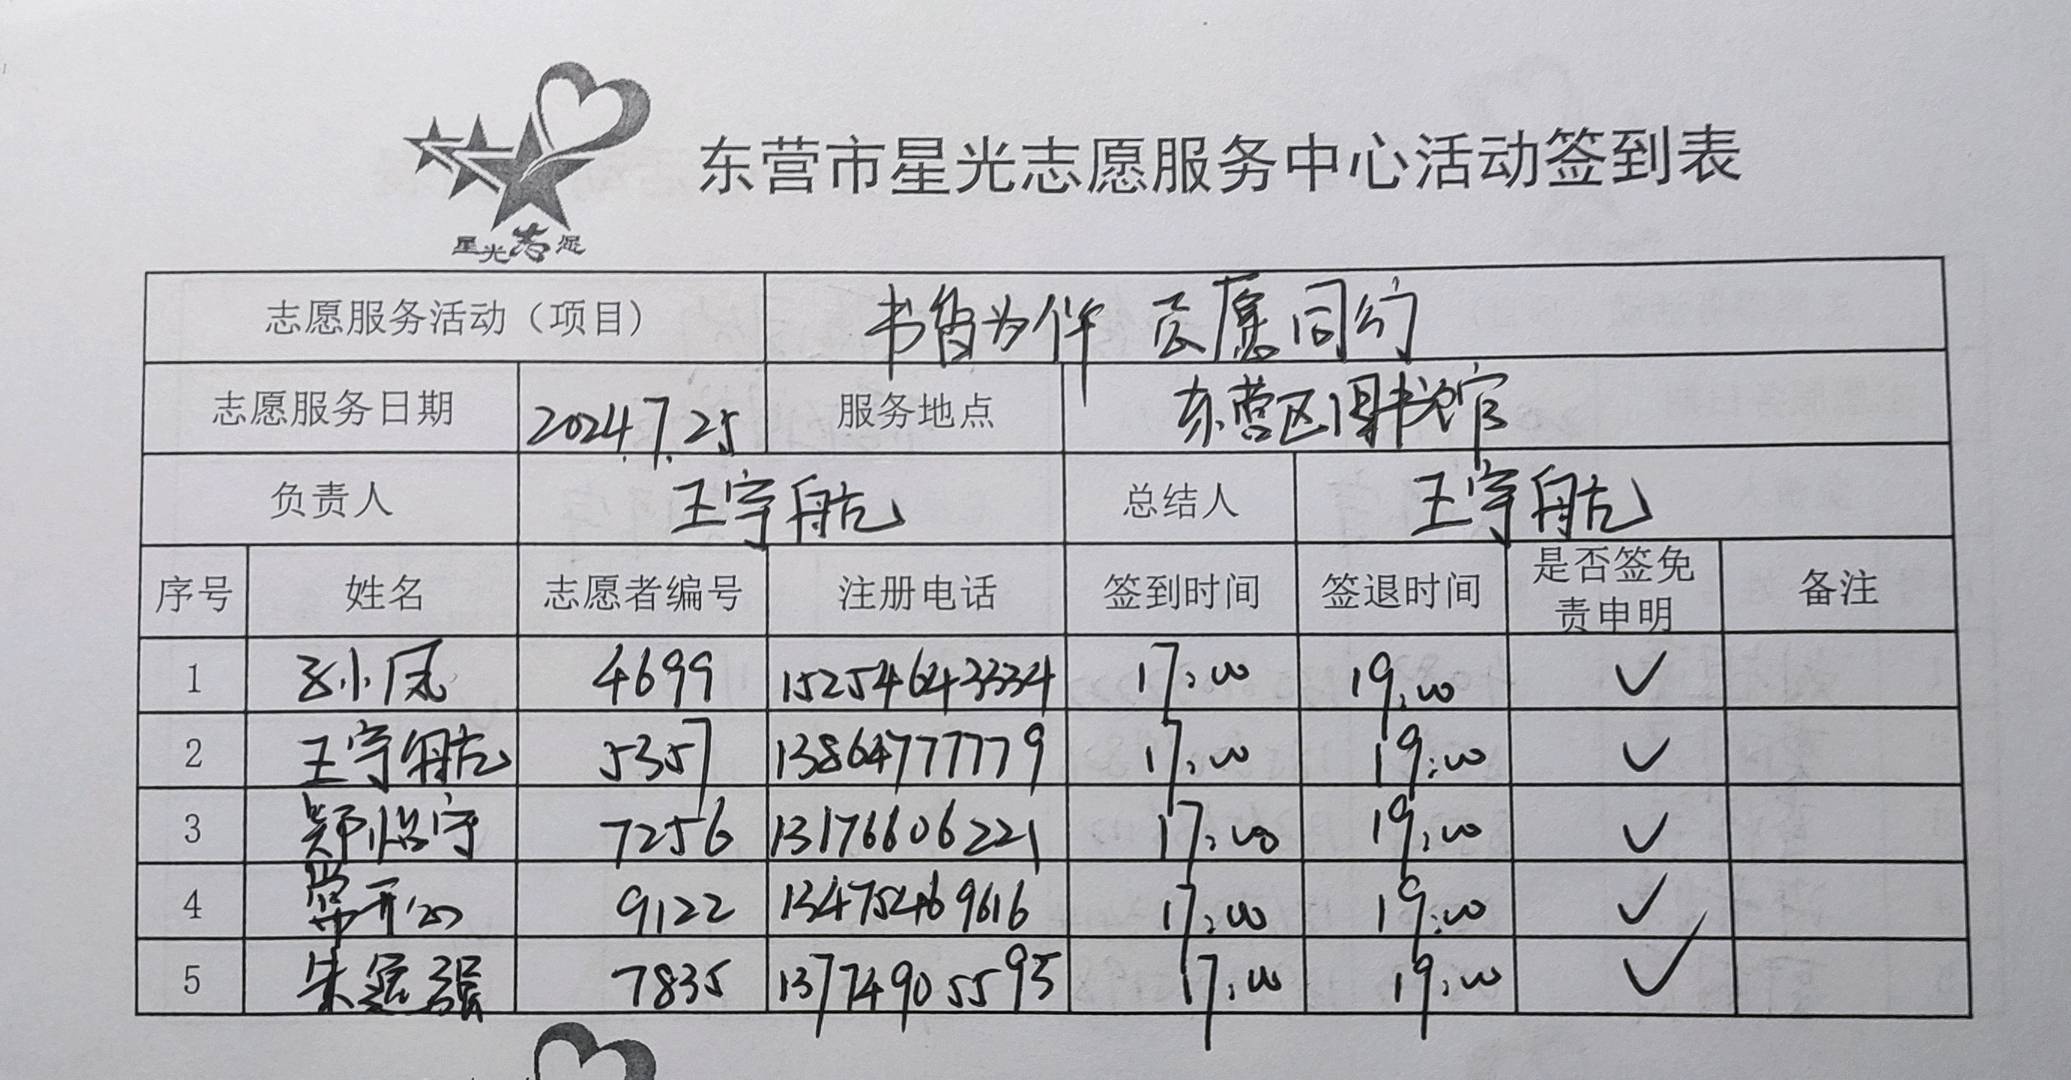 东营市星光志愿服务中心活动签到表
星光志愿
志愿服务活动（项目） 书香为伴 志愿同行
志愿服务日期 2024.7.25 服务地点 东营区图书馆
负责人 王宇航 总结人 王宇航
序号 姓名 志愿者编号 注册电话 签到时间 签退时间 是否签免责申明 备注
1 孙小凤 4699 15254643334 17:00 19:00 ✓
2 王宇航 5357 13864777779 17:00 19:00 ✓
3 郑悦宁 7256 13176606221 17:00 19:00 ✓
4 常开心 9122 13475469616 17:00 19:00 ✓
5 朱延强 7835 13774905595 17:00 19:00 ✓